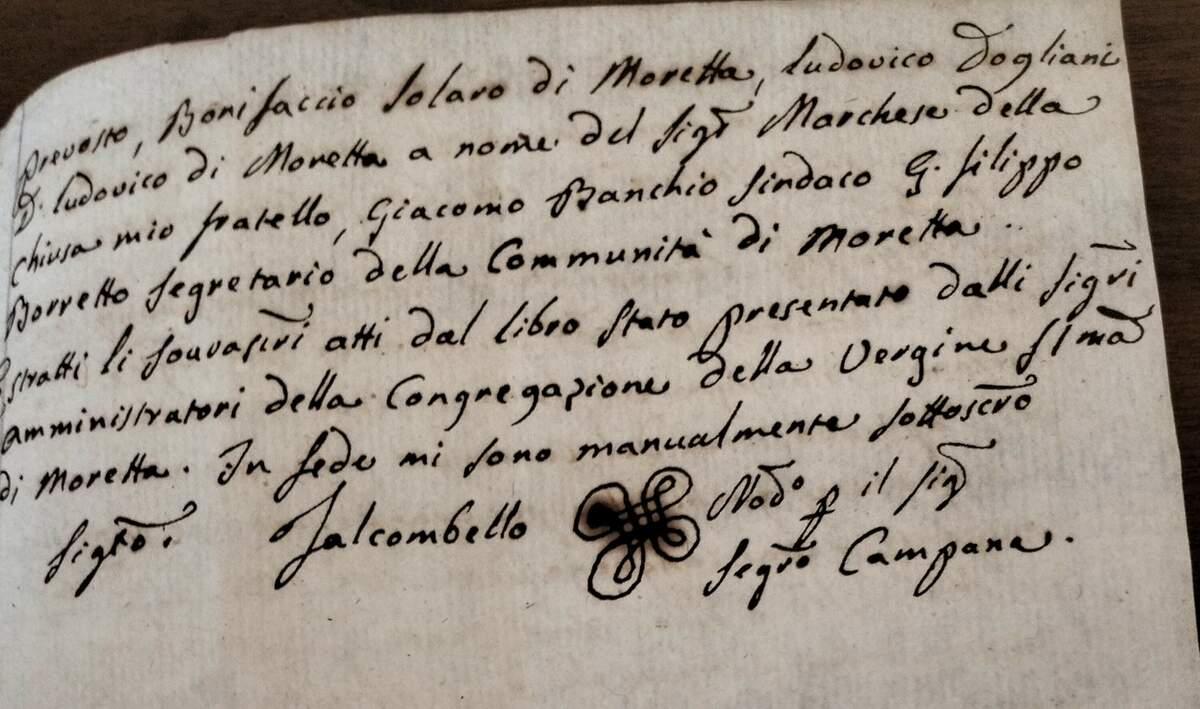 prevosto, Bonifaccio Solaro di Moretta, Ludovico Dogliani
D. Ludovico di Moretta a nome del Sigr Marchese della
Chiusa mio fratello, Giacomo Banchio Sindaco G. Filippo
Borretto Segretario della Communità di Moretta..
Estratti li souvascri atti dal libro stato presentato dalli Sigri
amministratori della Congregazione della Vergine SSma
di Moretta. In fede mi sono manualmente sottoscro
Falcombello Nodo p il Sigr
Segro Campana.